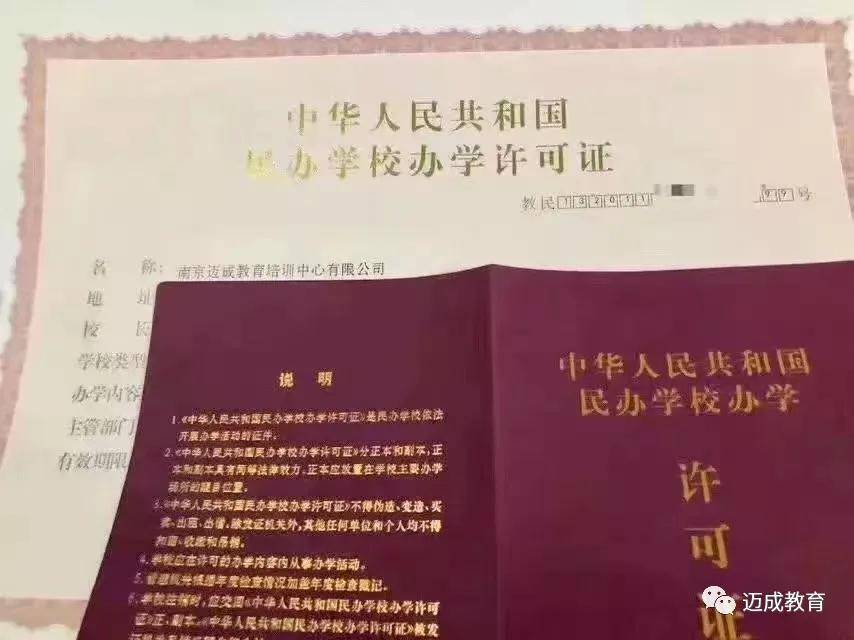 中华人民共和国
民办学校办学许可证
教民132011
99号
名 称：南京迈成教育培训中心有限公司
地 址
校 长
学校类型
办学内容
主管部门
有效期限
说 明
1.《中华人民共和国民办学校办学许可证》是民办学校依法
开展办学活动的证件。
2.《中华人民共和国民办学校办学许可证》分正本和副本，正
本和副本具有同等法律效力。正本应放置在学校主要办学
场所的醒目位置。
3.《中华人民共和国民办学校办学许可证》不得伪造、变造、买
卖、出租、出借，除发证机关外，其他任何单位和个人均不得
扣留、收缴和吊销。
4.学校应在许可的办学内容内从事办学活动。
5.管理机关根据年度检查情况加盖年度检查戳记。
6.学校注销时，应交回《中华人民共和国民办学校办学许可
证》正、副本。《中华人民共和国民办学校办学许可证》被发
中华人民共和国
民办学校办学
许
可
证
迈成教育